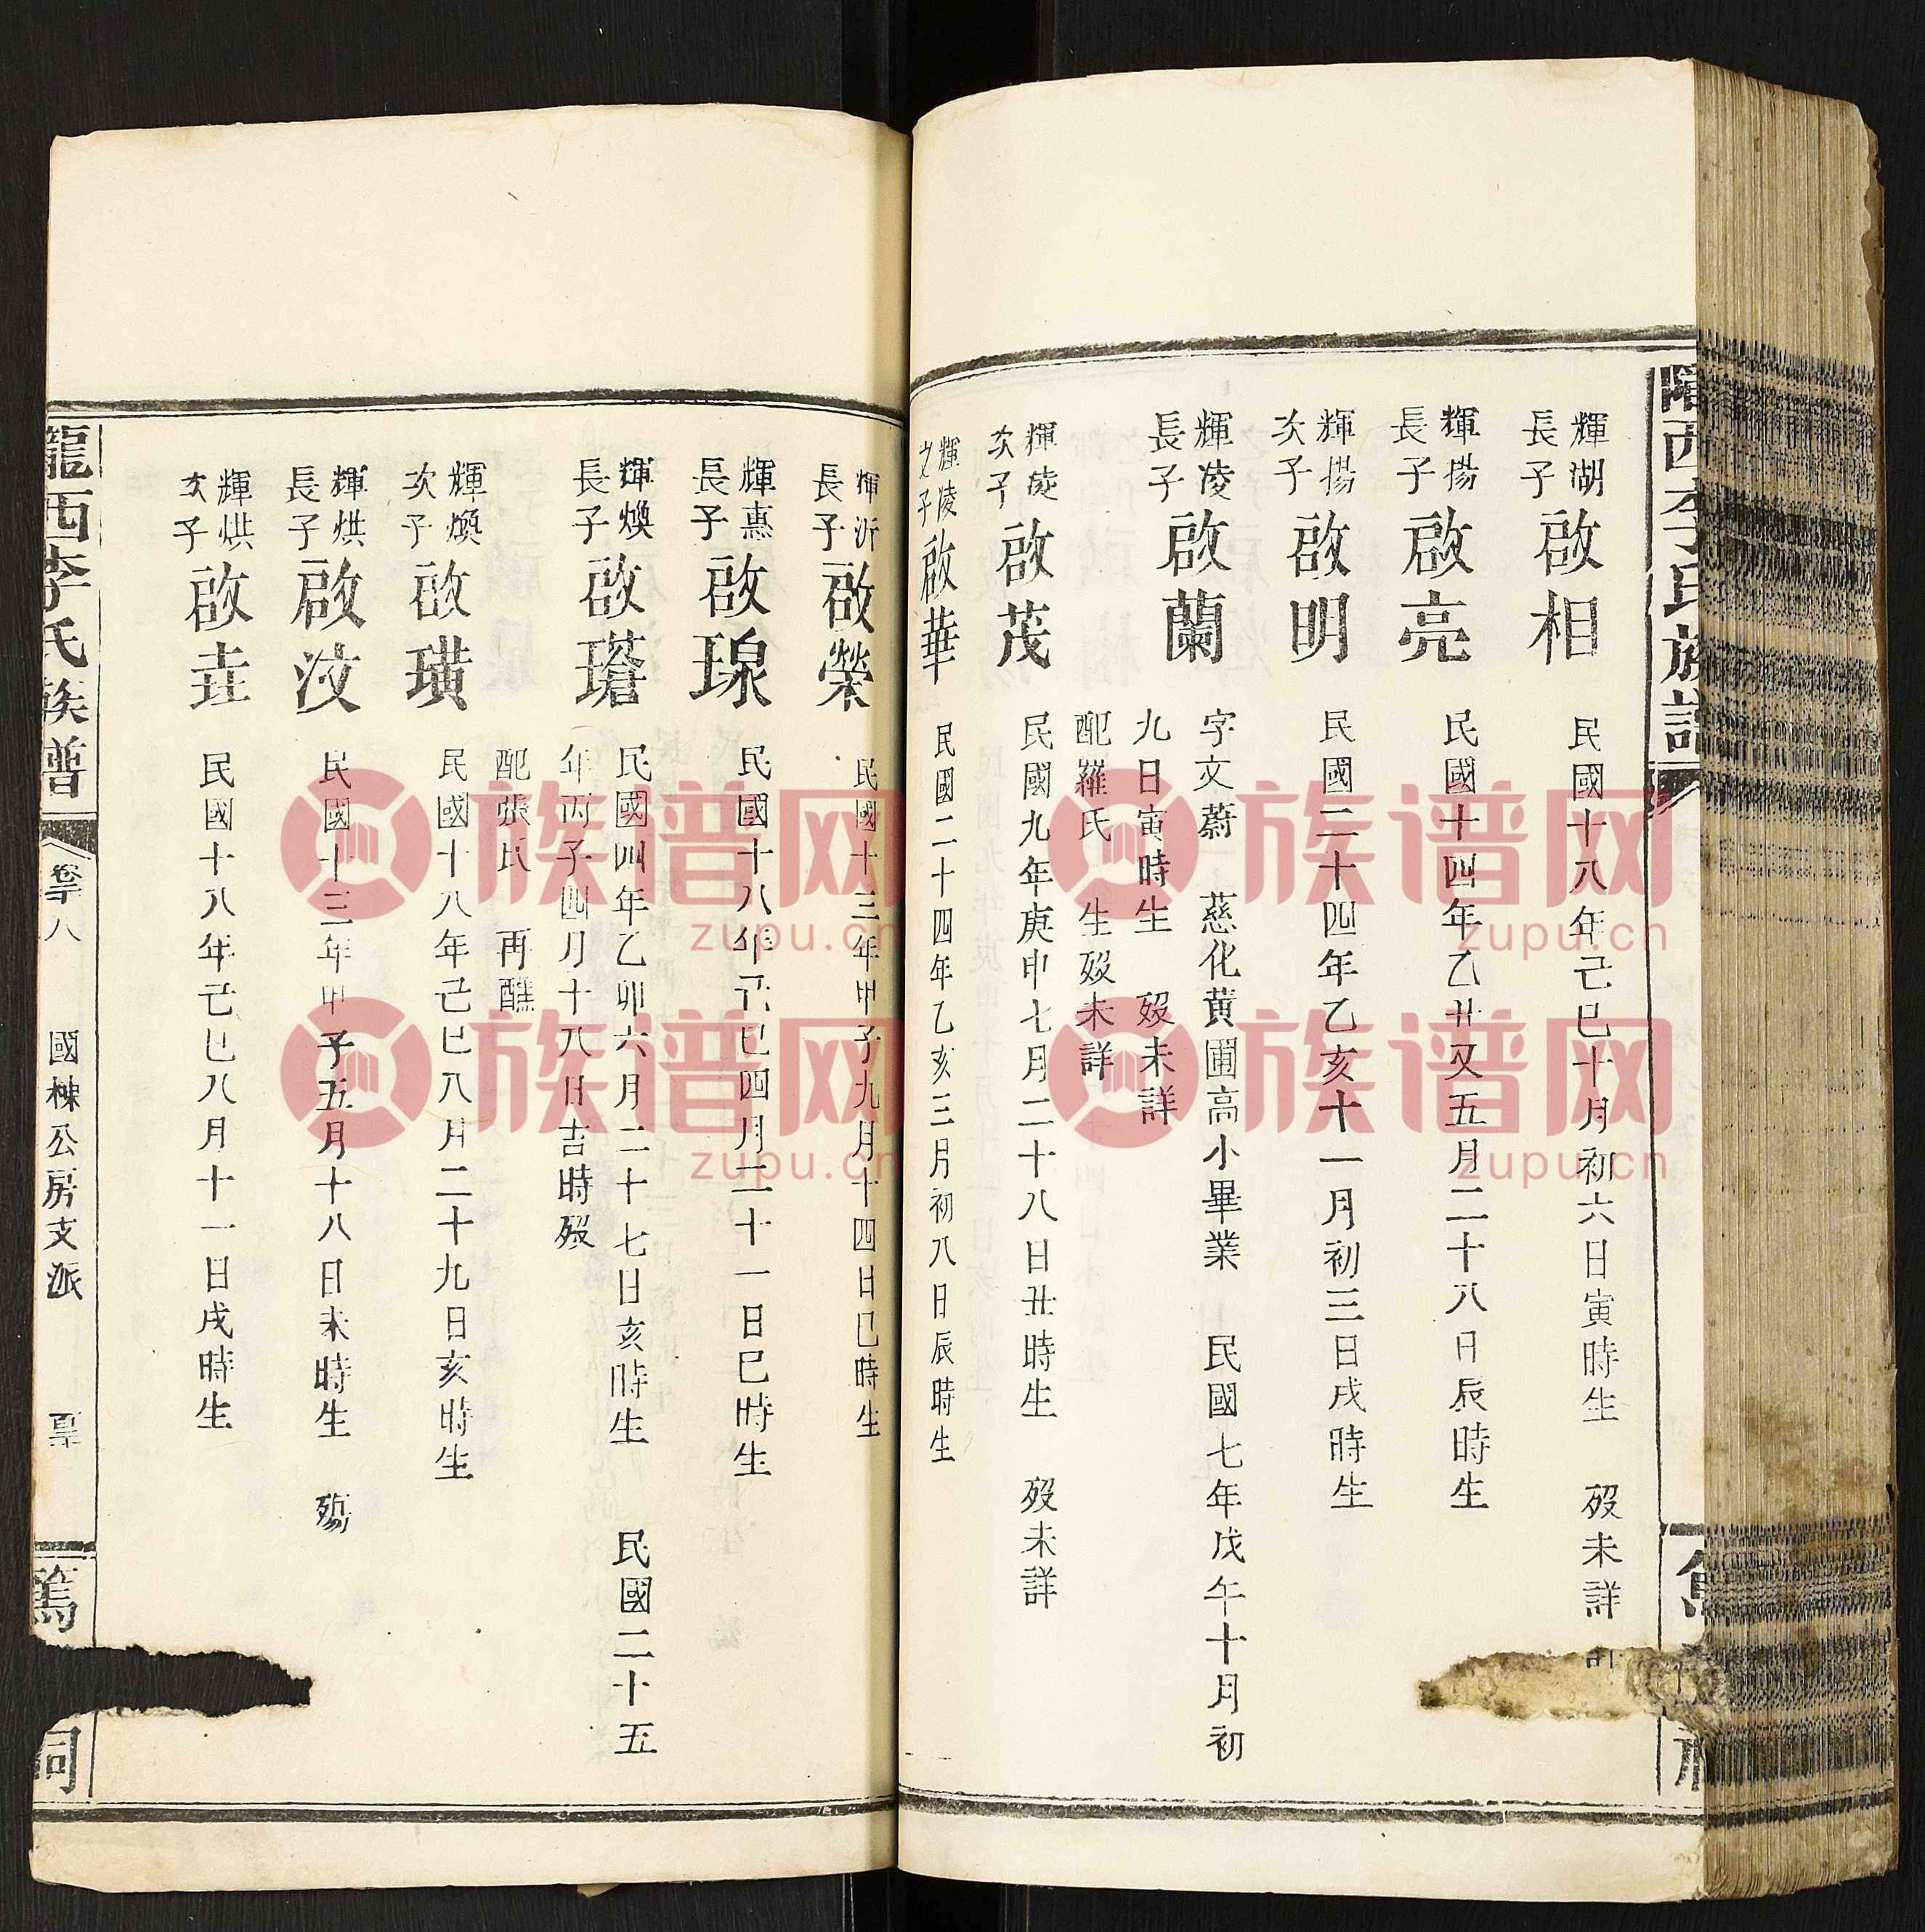 隴西李氏族譜
輝湖長子 啟相 民國十八年己巳十月初六日寅時生 歿未詳
輝揚長子 啟亮 民國十四年乙丑又五月二十八日辰時生
輝揚次子 啟明 民國二十四年乙亥十一月初三日戌時生
輝凌長子 啟蘭 字文蔚 慈化黃圃高小畢業 民國七年戊午十月初
九日寅時生 歿未詳
配羅氏 生歿未詳
輝凌次子 啟茂 民國九年庚申七月二十八日丑時生 歿未詳
輝陵之子 啟華 民國二十四年乙亥三月初八日辰時生
輝沂長子 啟榮 民國十三年甲子九月十四日巳時生
輝惠長子 啟線 民國十八年己巳四月二十一日巳時生
輝煥長子 啟瑃 民國四年乙卯六月二十七日亥時生 民國二十五
年丙子四月十八日吉時歿
配張氏 再醮
輝煥次子 啟璜 民國十八年己巳八月二十九日亥時生
輝烘長子 啟汶 民國十三年甲子五月十八日未時生 殤
輝烘次子 啟垚 民國十八年己巳八月十一日戌時生
龍西李氏族譜
卷十八
國棟公房支派
篤
祠
族谱网
zupu.cn
族谱网
zupu.cn
族谱网
zupu.cn
族谱网
zupu.cn